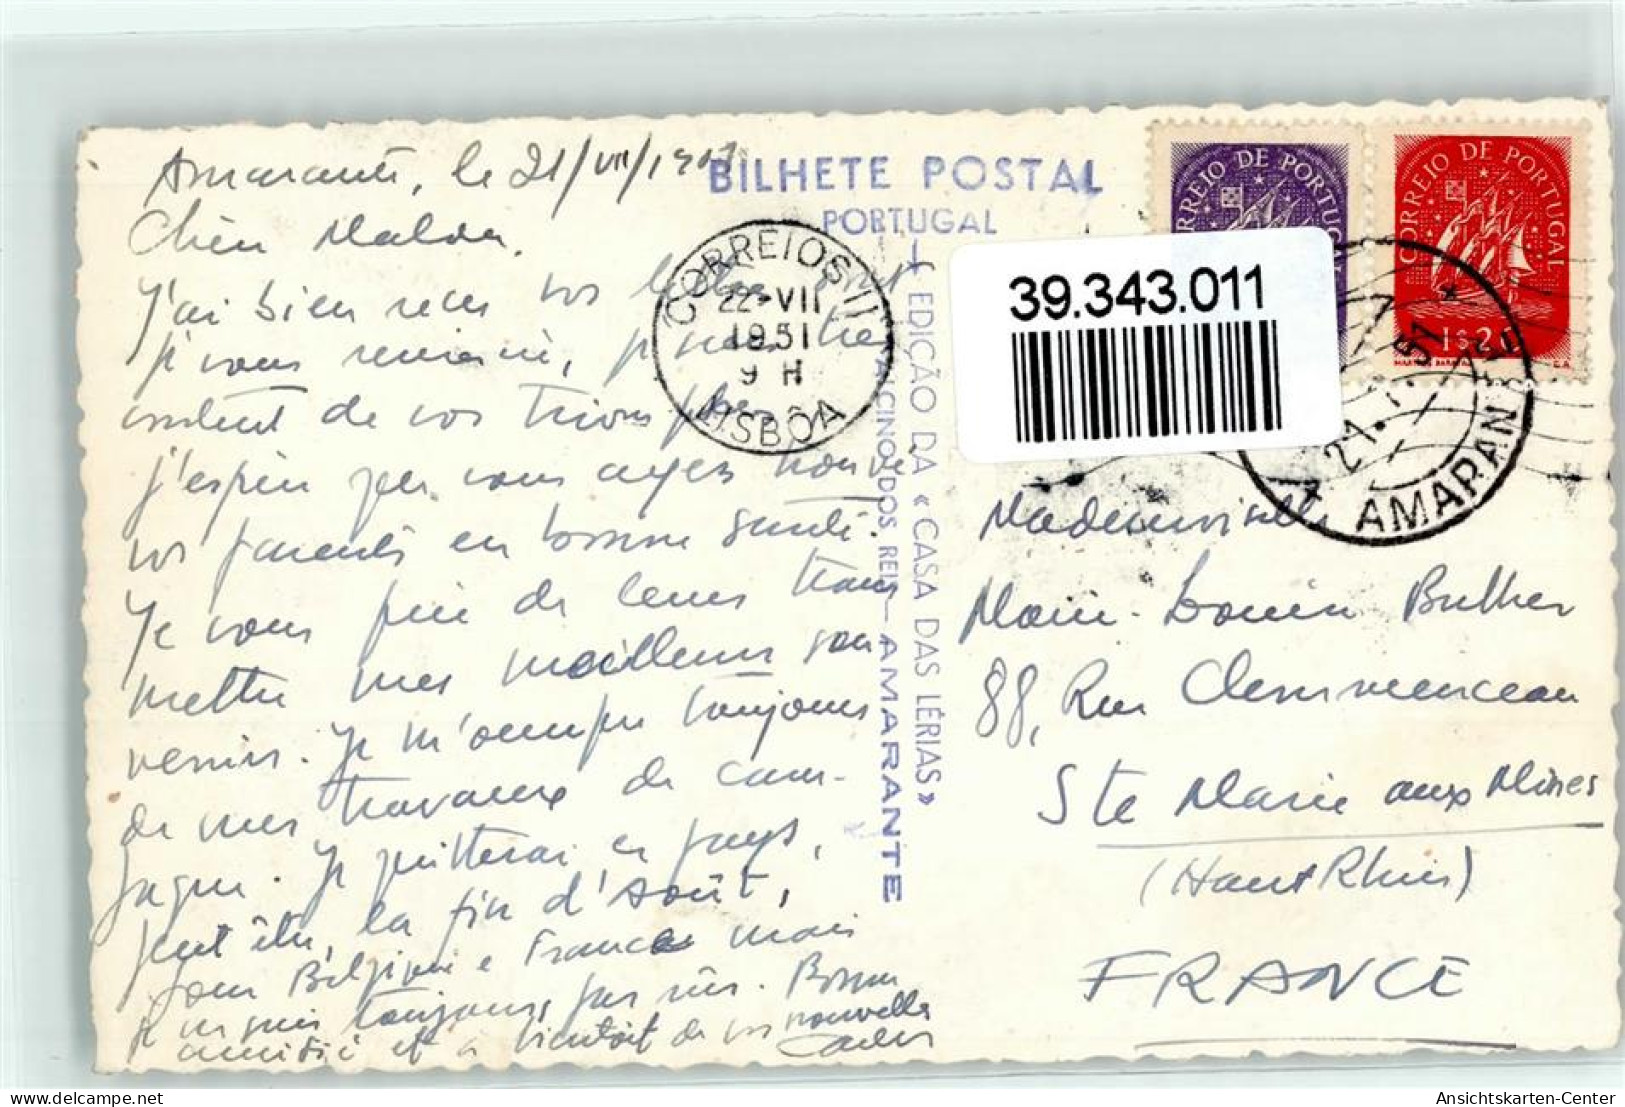 Amarante, le 21/VII/1951
BILHETE POSTAL
PORTUGAL
Chère Malou
J'ai bien reçu vos
je vous remercie, je suis très
content de vos
j'espère que vous ayez trouvé
vos parents en bonne santé.
Je vous prie de leurs trans
mettre mes meilleurs sou
venirs. Je m'occupe toujours
de mes travaux de cam-
pagne. Je quitterai ce pays,
peut être, la fin d'Août,
pour Belgique e France mais
je ne suis toujours pas sûr. Bonne
amitié et à bientôt de vos nouvelles
Carlos
CORREIOS II
22-VII
1951
9 H
LISBÔA
( EDIÇÃO DA « CASA DAS LÉRIAS»
ALCINO DOS REIS - AMARANTE
CORREIO DE PORTUGAL
CORREIO DE PORTUGAL
1$2
39.343.011
AMARAN
Mademoiselle
Marie-Louise Buther
88, Rue Clemmenceau
Ste Marie aux Mines
(Haut Rhin)
FRANCE
Ansichtskarten-Center